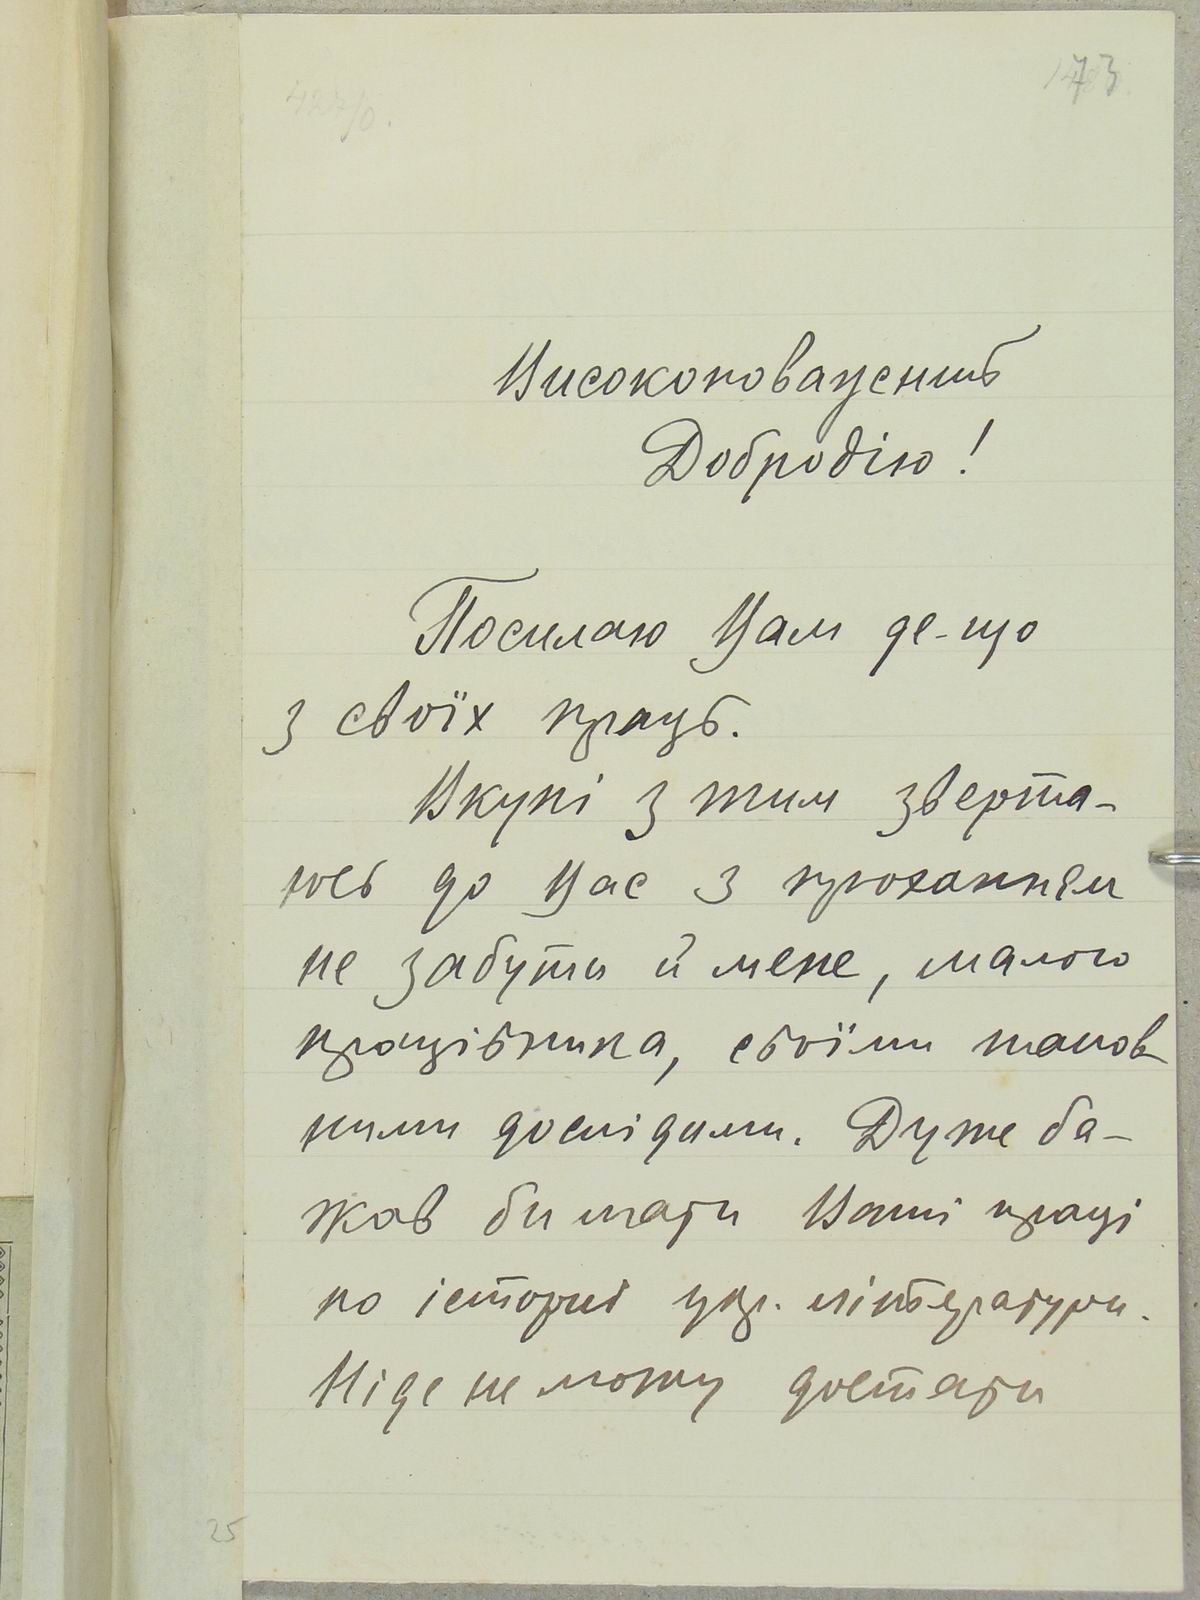 73
Високоповажений
Добродію!
Посилаю Вам де-що
з своїх праць.
Вкупі з тим зверта-
юсь до Вас з проханнєм
не забути й мене, малого
працівника, своїми шанов
ними дослідами. Дуже ба-
жав би мати Ваші праці
по істориї укр. літератури.
Ніде не можу достати
25